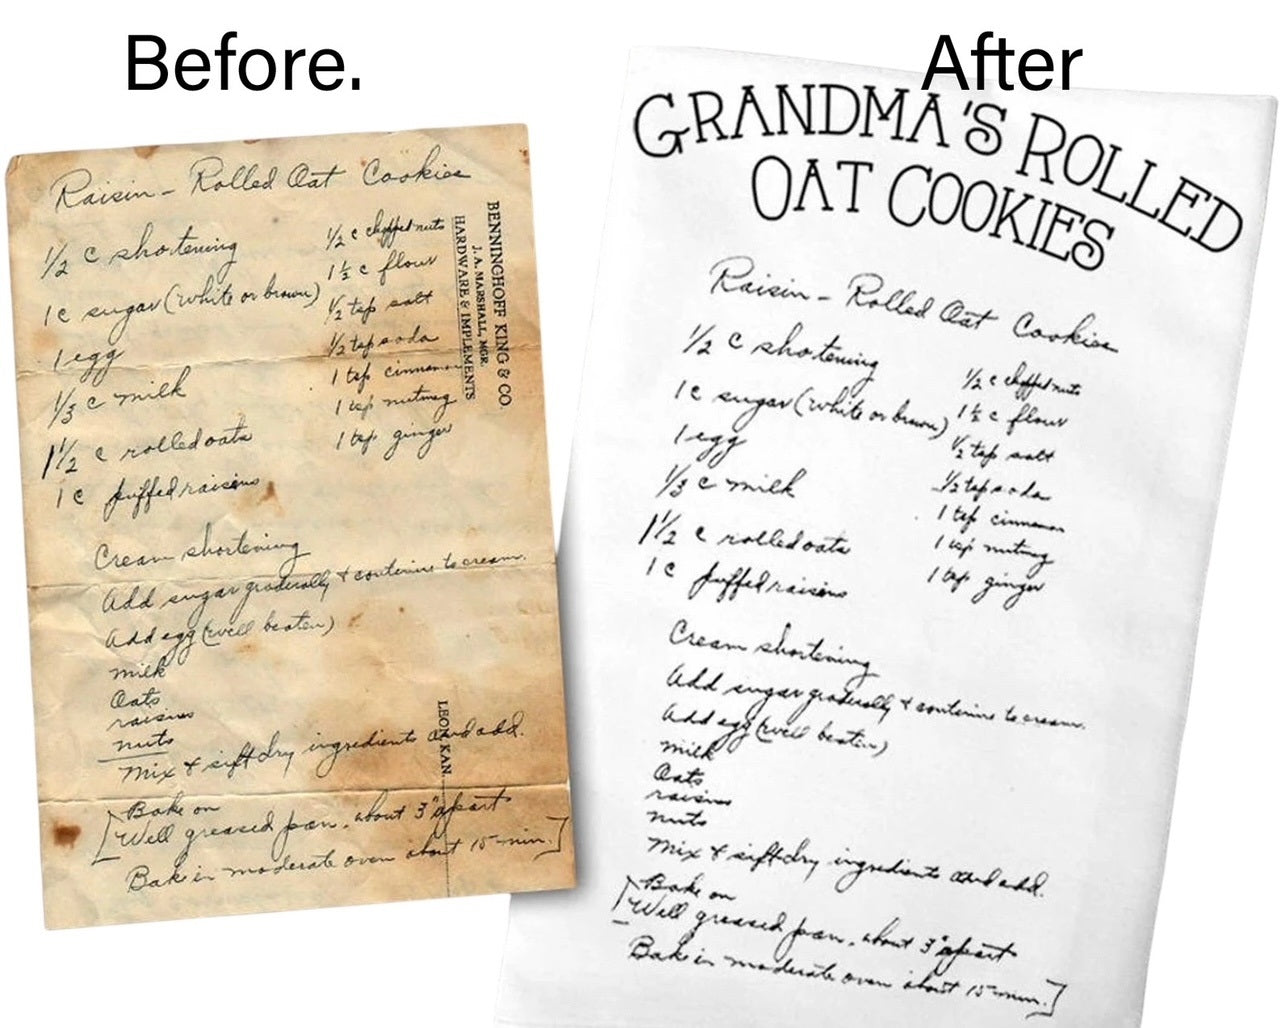 Before.
Raisin - Rolled Oat Cookies
1/2 c shortening
1 c sugar (white or brown)
1 egg
1/3 c milk
1 1/2 c rolled oats
1 c puffed raisins
1/2 c chopped nuts
1 1/2 c flour
1/2 tsp salt
1/2 tsp soda
1 tsp cinnamon
1 tsp nutmeg
1 tsp ginger
BENNINGHOFF KING & CO.
J. A. MARSHALL, MGR.
HARDWARE & IMPLEMENTS
Cream shortening
Add sugar graderally & continue to cream.
Add egg (well beaten)
milk
Oats
raisins
nuts
Mix & sift dry ingredients and add.
LEON, KAN.
[Bake on
Well greased pan, about 3" apart
Bake in moderate oven about 15 min.]
After
GRANDMA'S ROLLED
OAT COOKIES
Raisin - Rolled Oat Cookies
1/2 c shortening
1 c sugar (white or brown)
1 egg
1/3 c milk
1 1/2 c rolled oats
1 c puffed raisins
1/2 c chopped nuts
1 1/2 c flour
1/2 tsp salt
1/2 tsp soda
1 tsp cinnamon
1 tsp nutmeg
1 tsp ginger
Cream shortening
Add sugar graderally & continue to cream.
Add egg (well beaten)
milk
Oats
raisins
nuts
Mix & sift dry ingredients and add.
[Bake on
Well greased pan, about 3" apart
Bake in moderate oven about 15 min.]